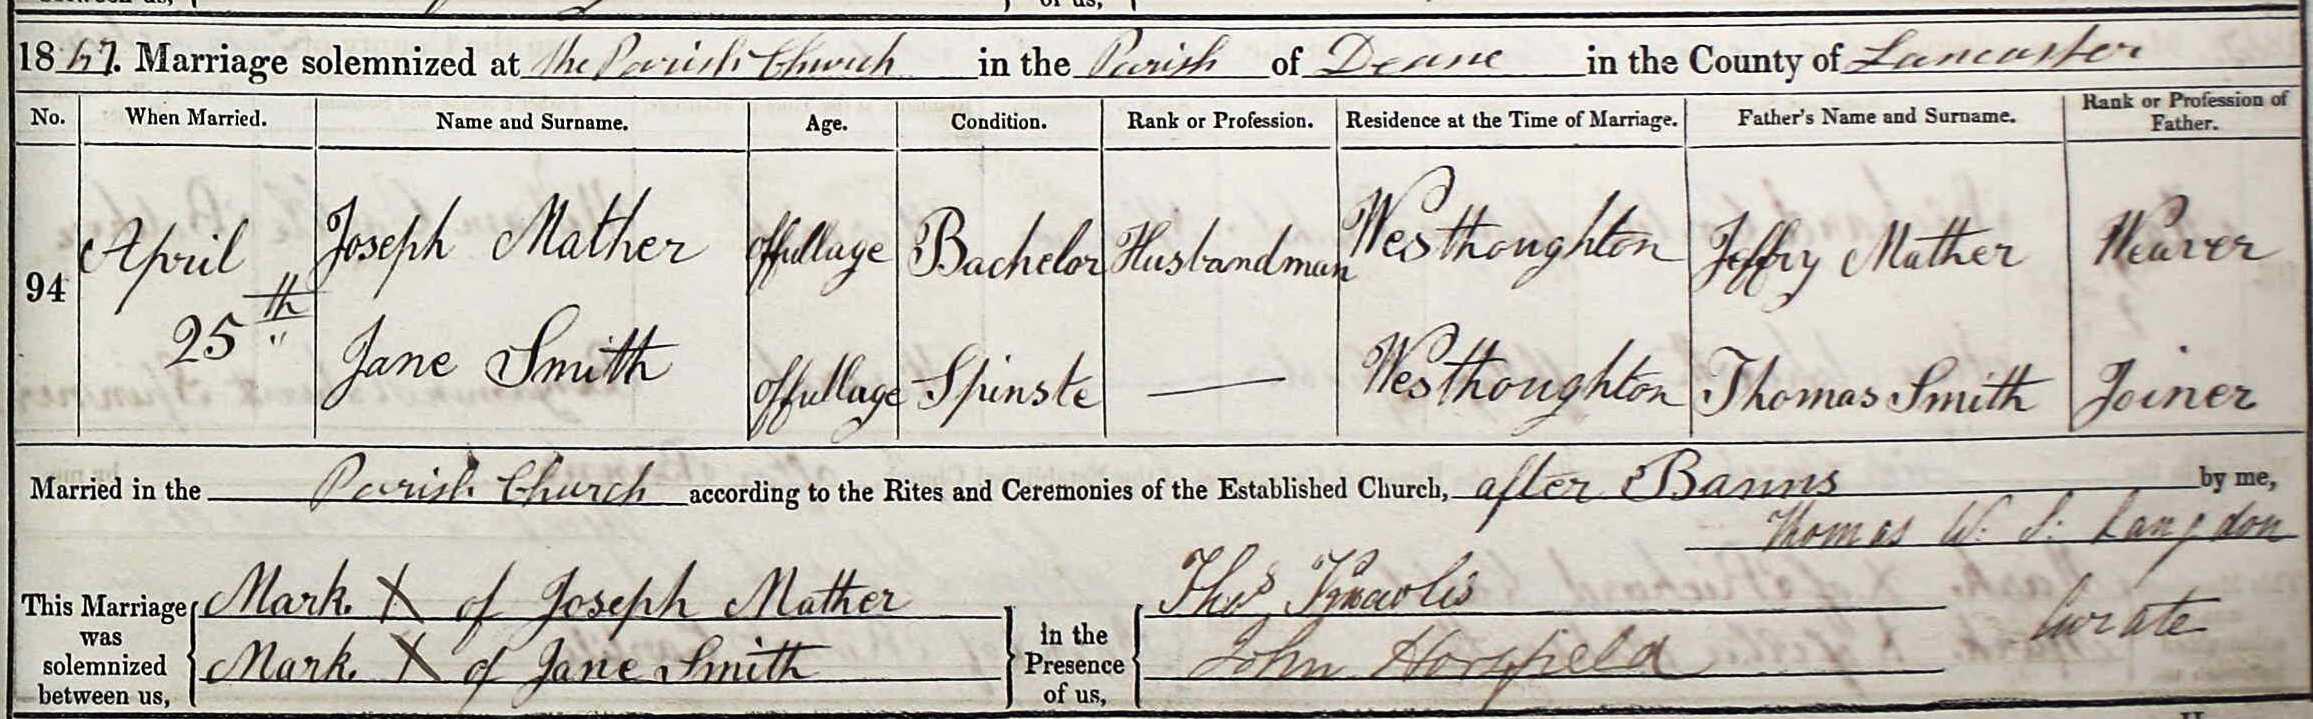 1867. Marriage solemnized at the Parish Church in the Parish of Deane in the County of Lancaster
No. When Married. Name and Surname. Age. Condition. Rank or Profession. Residence at the Time of Marriage. Father's Name and Surname. Rank or Profession of Father.
94 April 25th Joseph Mather Offullage Bachelor Husbandman Westhoughton Jeffry Mather Weaver
Jane Smith Offullage Spinste — Westhoughton Thomas Smith Joiner
Married in the Parish Church according to the Rites and Ceremonies of the Established Church, after Banns by me,
Thomas W. S. Langdon
Curate
This Marriage was solemnized between us,
Mark. X of Joseph Mather
Mark. X of Jane Smith
in the Presence of us,
Thos
John Horsfield